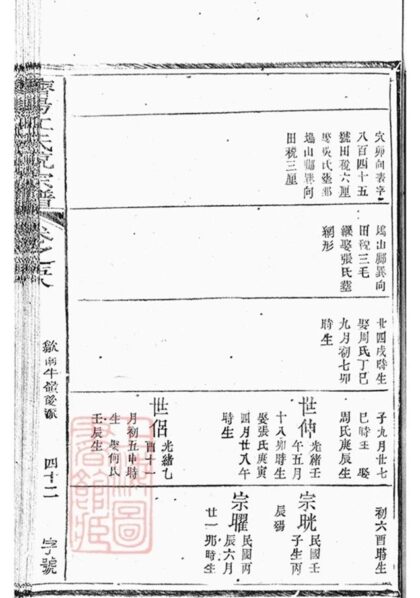 穴卯向表字
八百四十五
號田稅六厘
娶吳氏
塢山 巽向
田稅三厘
塢山 巽向
田稅三毛
繼娶張氏墓
形
廿四戌時生
娶周氏丁巳
九月初七卯
時生
子九月廿七
巳時生 娶
周氏庚辰生
世伸 光緒壬
午五月
十八卯時生
娶張氏庚寅
四月廿八午
時生
世侶 光緒乙
酉十一
月初五申時
生 娶何氏
壬辰生
初六酉時生
宗晄 民國壬
子生丙
辰殤
宗曜 民國丙
辰六月
廿一卯時生
濟陽江氏統宗譜
卷之五
歙南牛嶺後派
四十二
字號